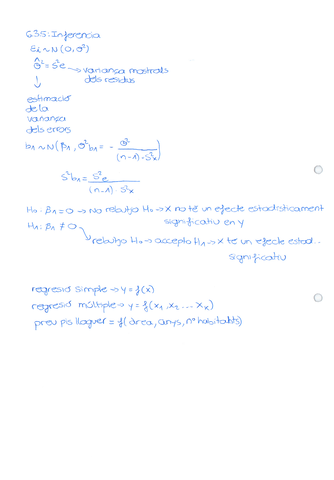 6.3.5: Inferencia
Ei ~ N(0, σ²)
σ̂² = S²e → variança mostrals
↓ dels residus
estimació
de la
variança
dels errors
b₁ ~ N(β₁, σ²b₁ = σ² / (n-1)·S²x)
S²b₁ = S²e / (n-1)·S²x
H₀: β₁ = 0 → No rebutjo H₀ → X no té un efecte estadísticament
significatiu en Y
H₁: β₁ ≠ 0
rebutjo H₀ → accepto H₁ → X té un efecte estad..
significatiu
regresió simple → y = f(x)
regresió múltiple → y = f(x₁, x₂ ... xₖ)
preu pis lloguer = f(àrea, anys, nº habitants)